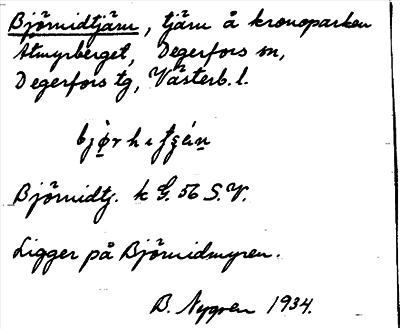 Björnidtjärn, tjärn å kronoparken
Åtmyrberget, Degerfors sn,
Degerfors tg, Västerb. l.
Björnidtj. k G. 56 S.V.
Ligger på Björnidmyren.
B. Nygren 1934.